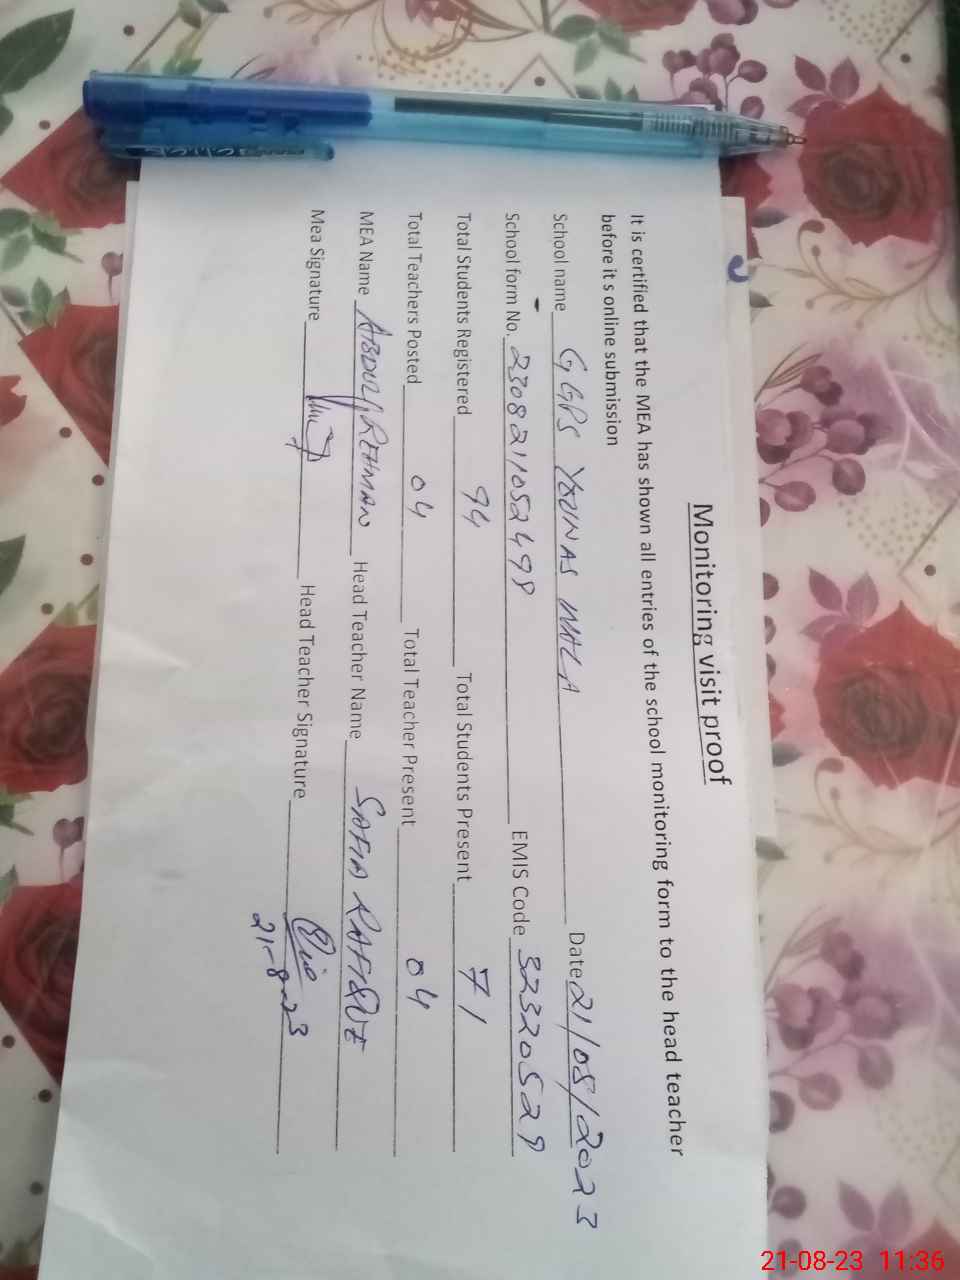 Monitoring visit proof
It is certified that the MEA has shown all entries of the school monitoring form to the head teacher
before it s online submission
School name GGPS YOUNAS WALA Date 21/08/2023
School form No. 2308211052498 EMIS Code 32320528
Total Students Registered 94 Total Students Present 71
Total Teachers Posted 04 Total Teacher Present 04
MEA Name ABDUL REHMAN Head Teacher Name SAFIA RAFIQUE
Mea Signature Head Teacher Signature
21-8-23
21-08-23 11:36